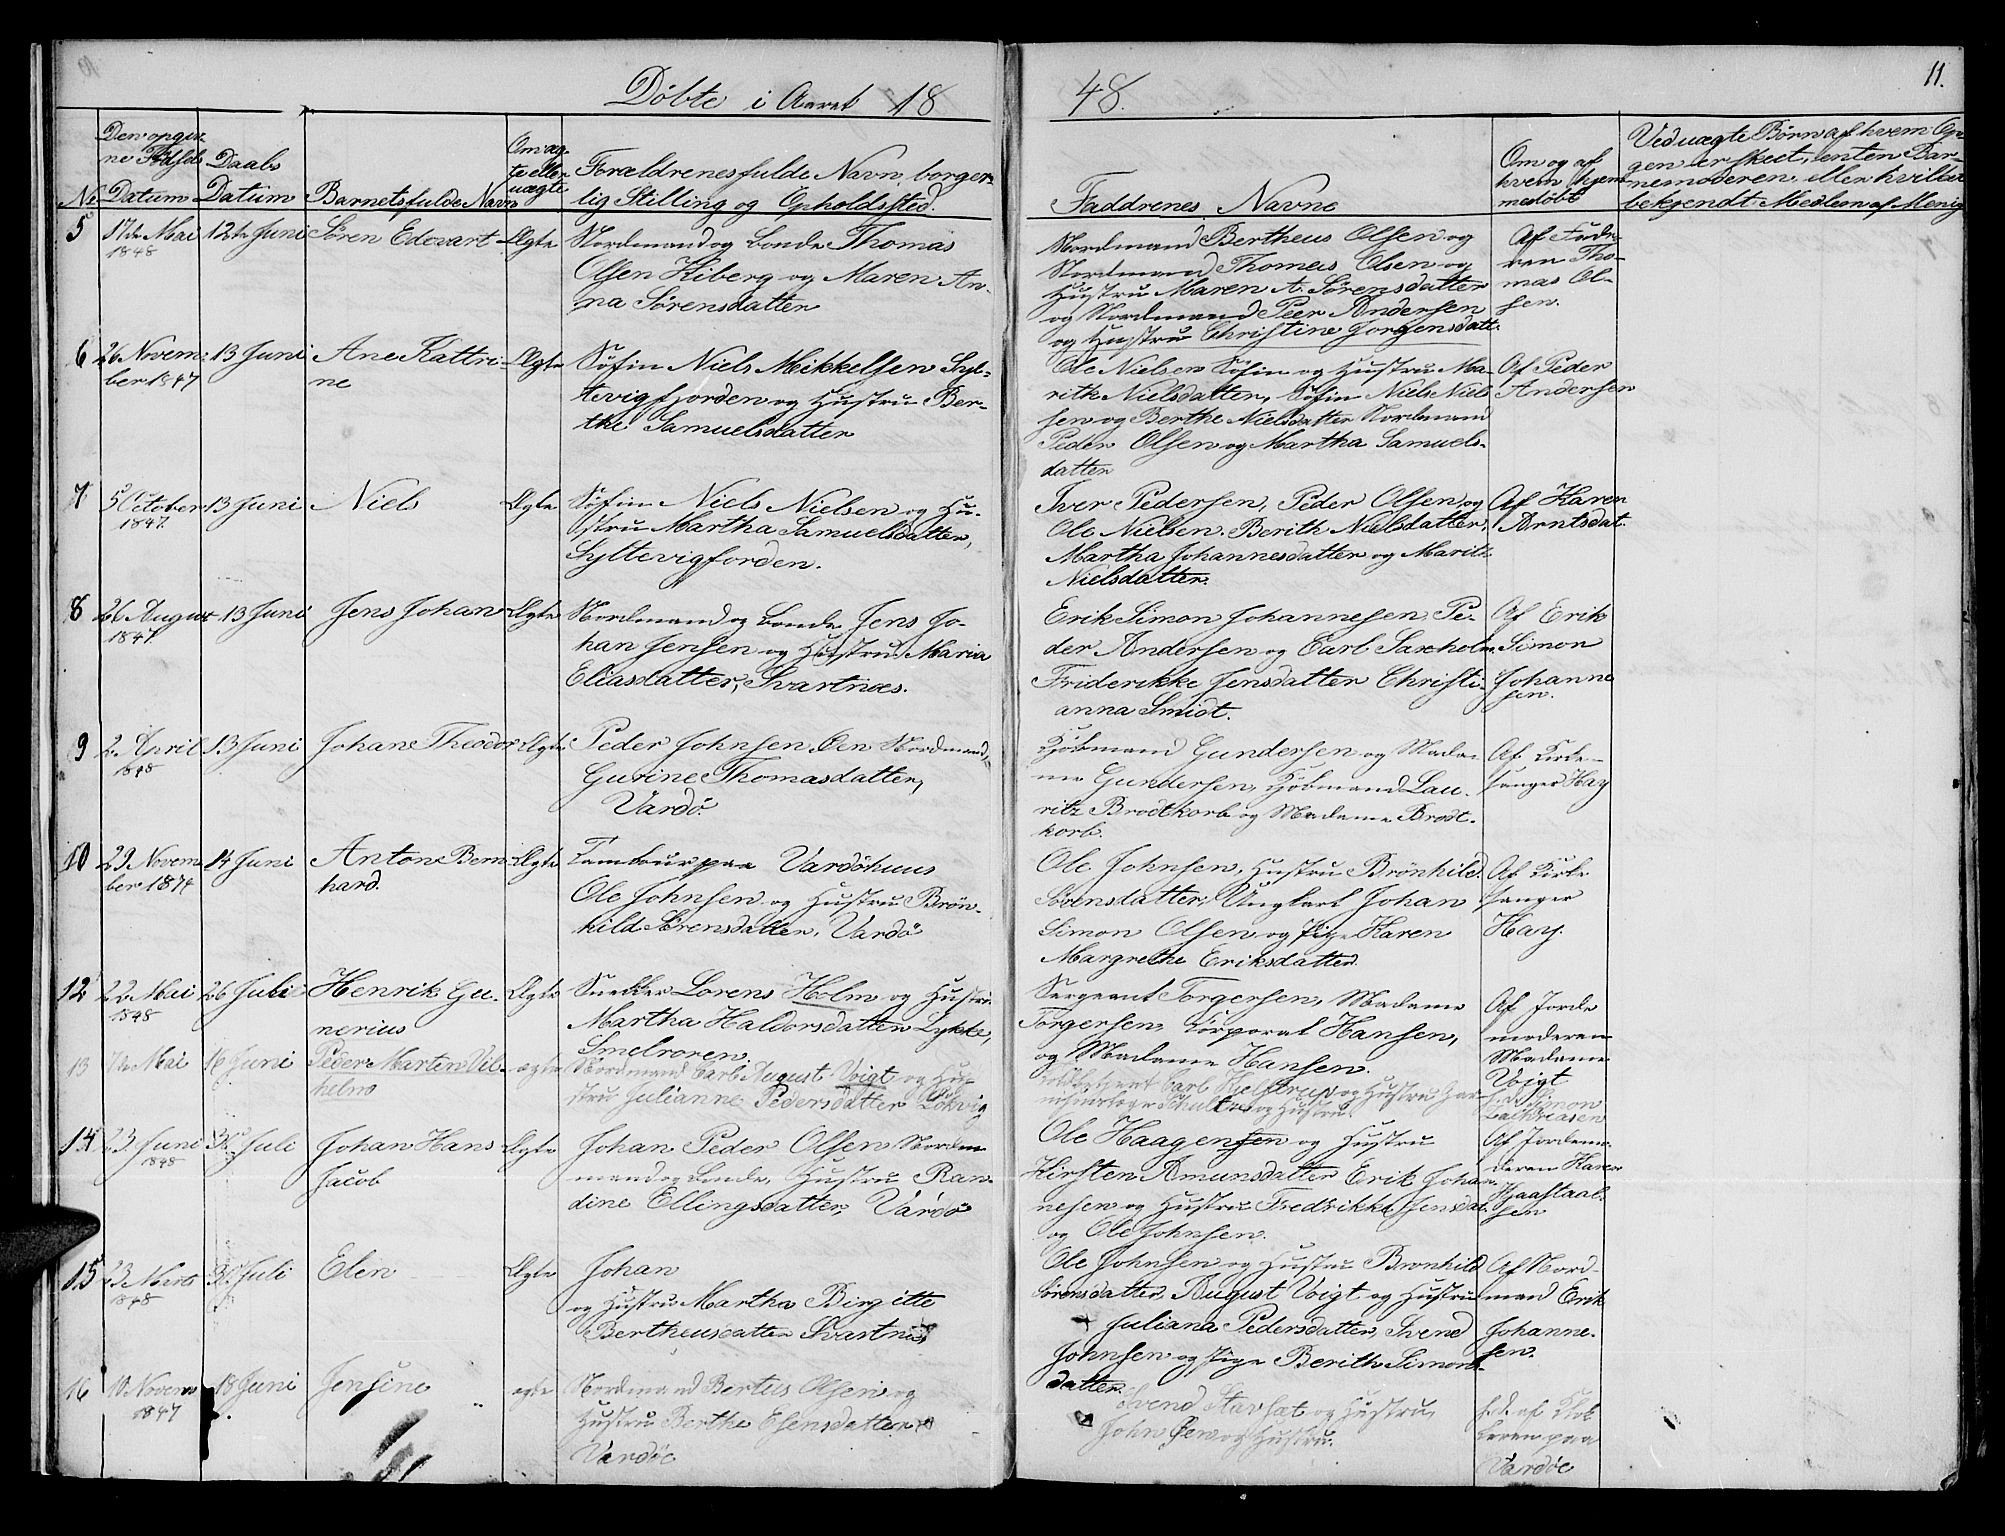 Döbte i Aaret 18 48. 11.
Den opgiv-
ne Födsels
Datum
Daabs
Datum
Barnets fulde Navn
Om æg-
te eller
uægte
Forældrenes fulde Navn, borger-
lig Stilling og Opholdssted.
Faddrenes Navne
Om og af
hvem hjem-
medöbt
Ved uægte Börn af hvem Op-
gen er skeet, enten Bar-
nemoderen eller hvilket
bekjendt Medlem af Menig
No
5 17de Mai 12te Juni Sören Edevart Ægte Nordmand og Bonde Thomas
1848
Olsen Kiberg og Maren An-
na Sörensdatter
Nordmand Bertheus Olsen og
Nordmand Thomas Olsen og
Hustru Maren A. Sörensdatter
og Nordmand Peer Andersen
og Hustru Christine Jörgensdatt:
Af Fade-
ren Tho-
mas Ol-
sen.
6 26 Novem- 13 Juni Ane Kattri- Ægte Söfin Niels Mikkelsen Syl-
ber 1847 ne tevigfjorden og Hustru Ber-
the Samuelsdatter
Ole Nielsen Söfin og Hustru Ma-
rith Nielsdatter, Söfin Niels Niel-
sen og Berthe Nielsdatter Nordmand
Peder Olsen og Martha Samuels-
datter
Af Peder
Andersen
7 5 October 13 Juni Niels Ægte Söfin Niels Nielsen og Hu-
1847. stru Martha Samuelsdatter,
Syltevigforden.
Iver Pedersen, Peder Olsen og
Ole Nielsen. Berith Nielsdatter,
Martha Johannesdatter og Marith
Nielsdatter.
Af Karen
Arntsdat.
8 26 August 13 Juni Jens Johan Ægte Nordmand og Bonde Jens Jo-
1847. han Jensen og Hustru Maria
Eliasdatter, Svartnæs.
Erik Simon Johannesen, Pe-
der Andersen og Carl Saxholm
Friderikke Jensdatter Christi-
anna Smidt.
Af Erik
Simon
Johanne
sen.
9 2 April 13 Juni Johan Theodor Ægte Peder Johnsen Oen Nordmand,
1848 Gurine Thomasdatter,
Vardö.
Kjöbmand Gundersen og Mada-
me Gundersen, Kjöbmand Lau-
ritz Brodtkorb og Madame Brodt-
korb.
Af Kirke-
sanger Hay
10 29 Novem 14 Juni Anton Bern- Ægte Tambur paa Vardöhuus
ber 1874 hard. Ole Johnsen og Hustru Brön-
hild Sörensdatter, Vardö
Ole Johnsen, Hustru Brönhild
Sörensdatter, Ungkarl Johan
Simon Olsen og Pige Karen
Margrethe Eriksdatter.
Af Kirke
sanger
Hay.
12 22 Mai 26 Juli Henrik Gu- Ægte Snedker Lorens Holm og Hustru
1848 nerius Martha Haldorsdatter Lykke,
Smelroren.
Sergeant Torgersen, Madame
Torgersen, Korporal Hansen,
og Madame Hansen.
Af Jorde
moderen
Madame
Voigt
13 7de Mai 16 Juni Peder Martin Vil- ægte Nordmand Carl August Voigt og Hu-
helm stru Julianne Pedersdatter Lökvig
og Hustru
Simon
14 23 Juni 30 Juli Johan Hans Ægte Johan Peder Olsen Nord-
1848 Jacob mand og Bonde, Hustru Ran-
dine Ellingsdatter, Vardö
Ole Haagensen og Hustru
Kirsten Amunsdatter Erik Johan-
nesen og Hustru Fredrikke Jensdat
og Ole Johnsen.
Af Jordemo-
deren Karen
15 23 Marts 30 Juli Elen Ægte Johan
1848 og Hustru Martha Birgitte
Bertheusdatter Svartnæs
Ole Johnsen og Hustru Brönhild
Sörensdatter, August Voigt og Hustru
Juliana Pedersdatter, Svend
Johnsen og Pige Berith Simons-
datter
Af Nord-
mand Erik
Johanne-
sen.
16 10 Novem 18 Juni Jensine ægte Nordmand Bertus Olsen og
1847 Hustru Berthe Esensdatter
Vardöe
Svend Stavsat og Hustru,
John Öen og Hustru.
h. d. af Klok
keren paa
Vardöe